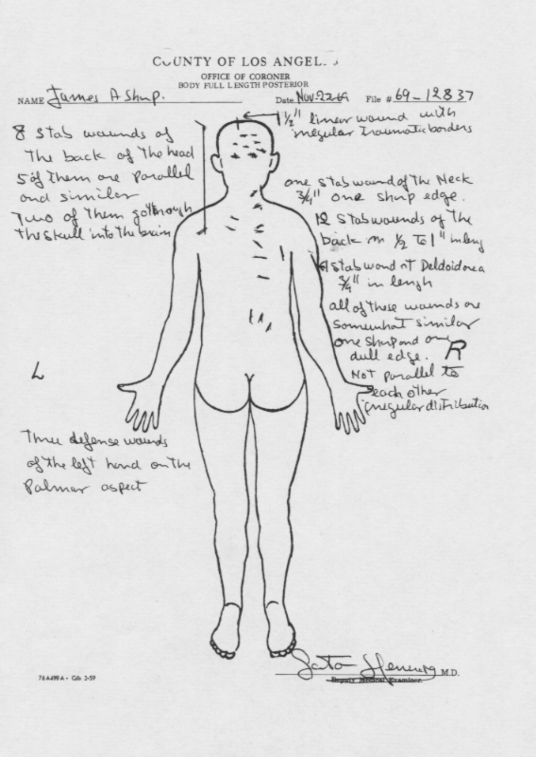 COUNTY OF LOS ANGEL
OFFICE OF CORONER
BODY FULL LENGTH POSTERIOR
NAME James A Sharp. Date Nov. 22 69 File # 69-12837
1 1/2" linear wound with
irregular Traumatic borders
8 stab wounds of
The back of the head
5 of them are parallel
and similar
Two of them go through
the skull into the brain
one stab wound of the Neck
3/4" one sharp edge.
12 stab wounds of the
back 1/2 To 1" in leng
A stab wound Deldoid area
3/4" in lengh
all of these wounds are
somewhat similar
one sharp and one
dull edge. R
Not parallel to
each other
irregular distribution
L
Three defense wounds
of the left hand on the
Palmar aspect
M.D.
Deputy Medical Examiner
76A498A